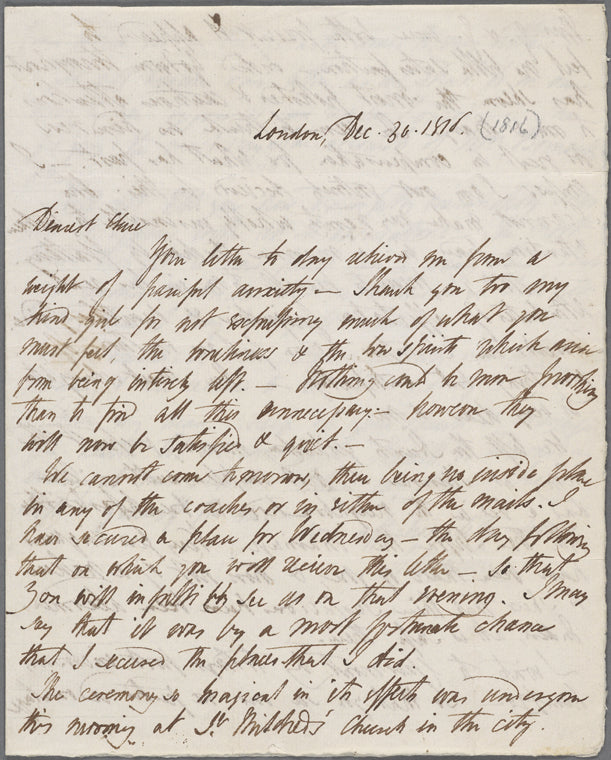 London, Dec. 30. 1816 (1816)
Dearest Clare
Your letter to day relieved me from a
weight of painful anxiety — Thank you too my
kind girl for not expressing much of what you
must feel, the loneliness & the low spirits which arise
from being entirely left. — Nothing could be more provoking
than to find all this unnecessary — however they
will now be satisfied & quiet. —
We cannot come tomorrow, there being no inside place
in any of the coaches or in either of the mails. I
have secured a place for Wednesday — the day following
that on which you will receive this letter — so that
you will see us on that evening. I may
say that it was by a most fortunate chance
that I secured the places that I did.
The ceremony so magical in its effects was undergone
this morning at St. Mildred's Church in the city.